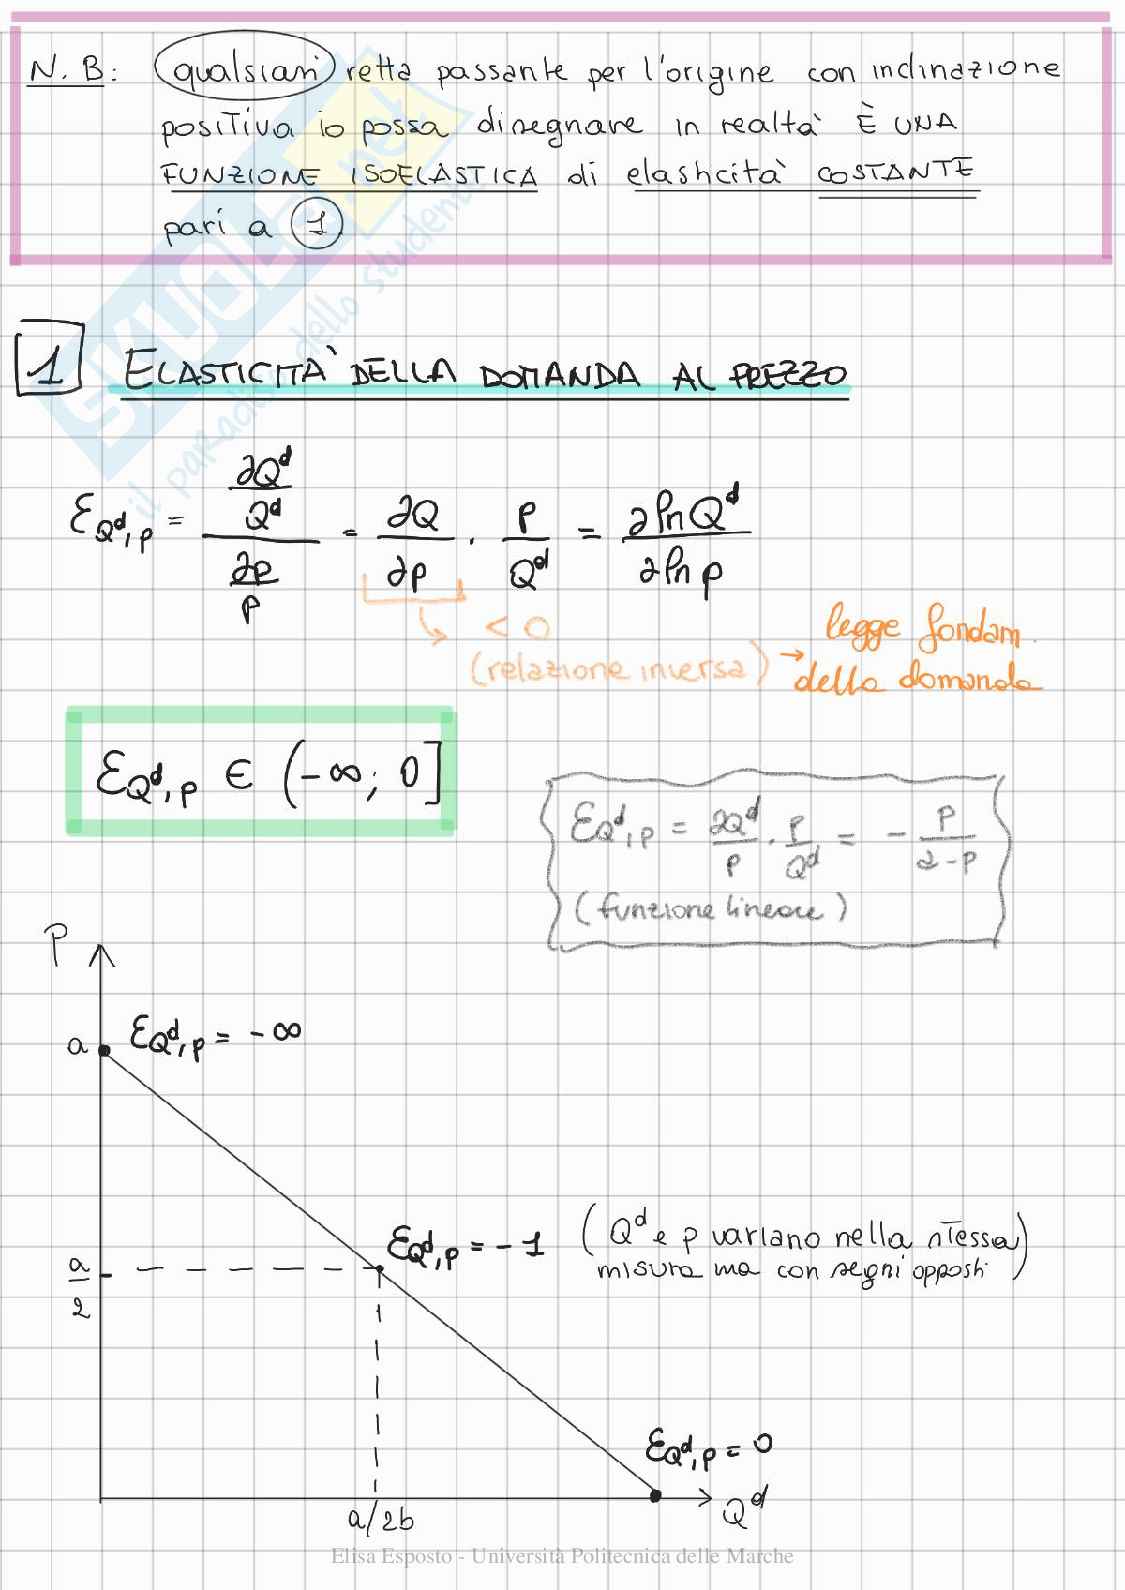 N.B: qualsiasi retta passante per l'origine con inclinazione
positiva io possa disegnare in realtà È UNA
FUNZIONE ISOELASTICA di elasticità COSTANTE
pari a 1
1 ELASTICITÀ DELLA DOMANDA AL PREZZO
ε_{Q^d,p} = (∂Q^d/Q^d)/(∂p/p) = ∂Q/∂p · P/Q^d = ∂lnQ^d/∂ln p
< 0
(relazione inversa) → legge fondam.
della domanda
ε_{Q^d,p} ∈ (-∞; 0]
ε_{Q^d,p} = ∂Q^d/p · p/Q^d = - p/a-p
(funzione lineare)
P
a
ε_{Q^d,p} = -∞
a/2
ε_{Q^d,p} = -1 (Q^d e p variano nella stessa
misura ma con segni opposti)
ε_{Q^d,p} = 0
a/2b
Q^d
SKUOLA.net
il paradiso dello studente
Elisa Esposto - Università Politecnica delle Marche